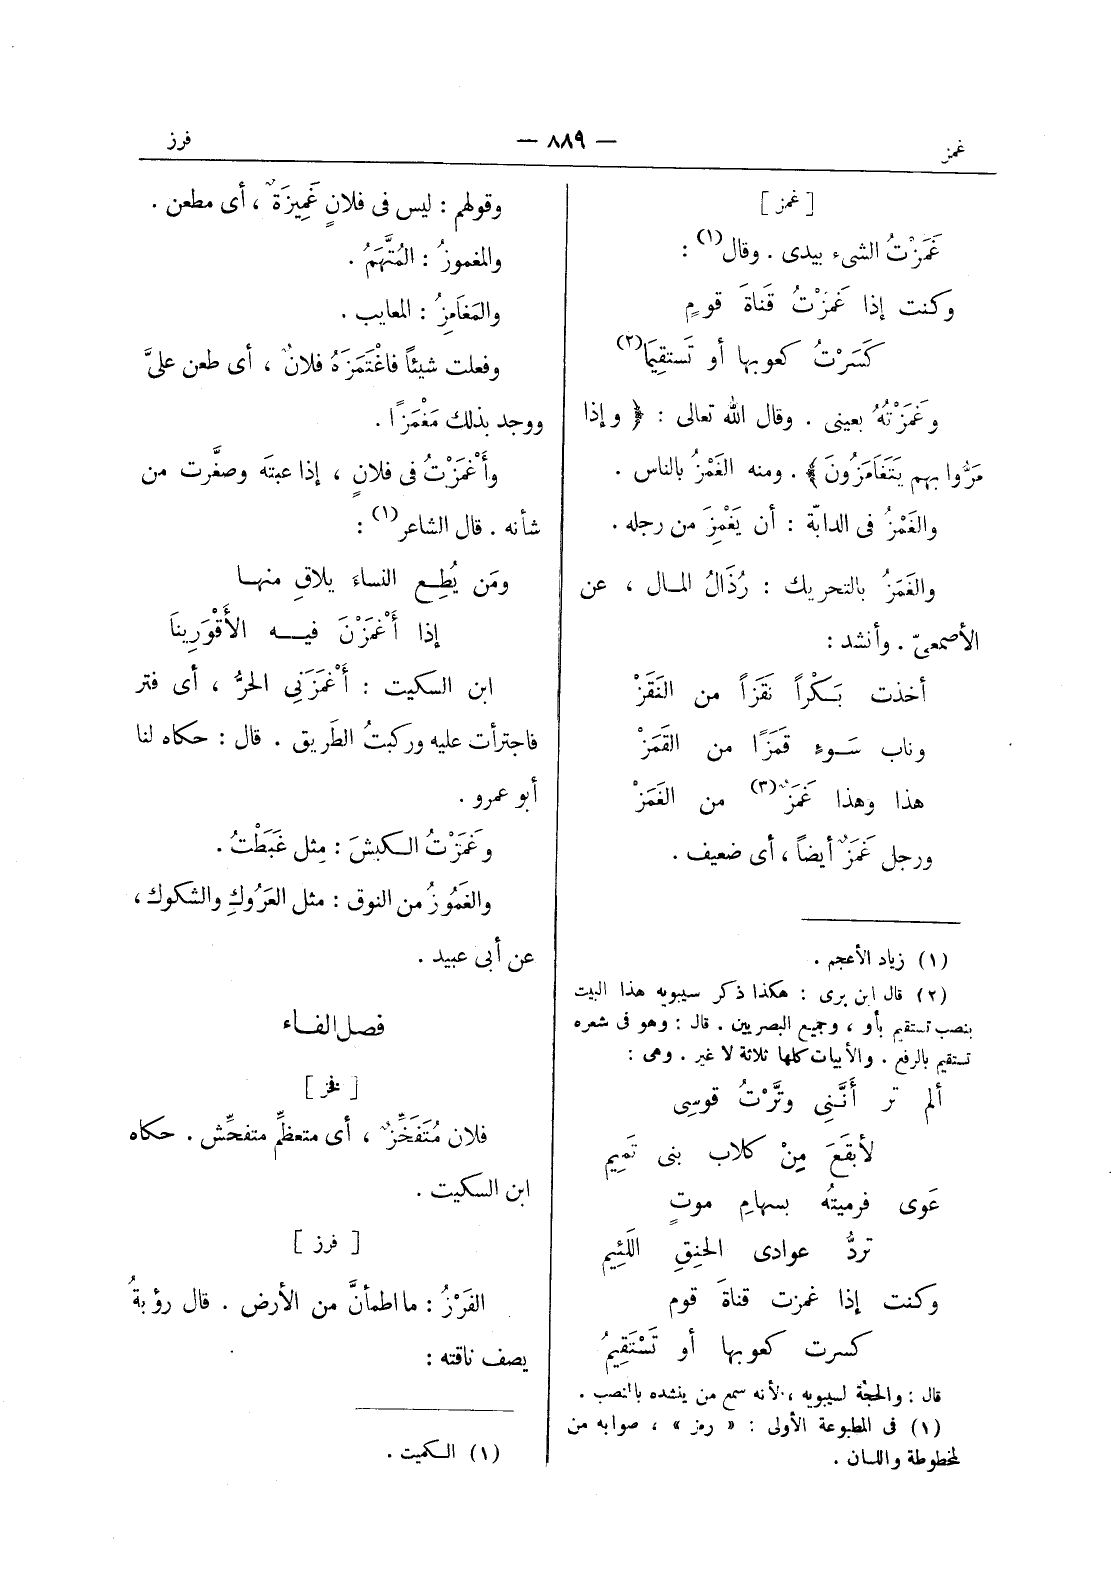 غمز
— ٨٨٩ —
فرز
[ غمز ]
غَمَزْتُ الشىء بيدى . وقال(١) :
وكنت إذا غَمَزْتُ قَناةَ قومٍ
كَسَرْتُ كعوبها أو تَستقِيمَا(٢)
وغَمَزْتُهُ بعينى . وقال الله تعالى : ﴿ وإذا
مَرُّوا بهم يَتَغَامَزُونَ ﴾ . ومنه الغَمْزُ بالناس .
والغَمْزُ فى الدابّة : أن يَغْمِزَ من رجله .
والغَمَزُ بالتحريك : رُذَالُ المال ، عن
الأصمعىّ . وأنشد :
أخذت بَكْراً نَقَزاً من النَقَزْ
وناب سَوءٍ قَمَزًا من القَمَزْ
هذا وهذا غَمَزٌ(٣) من الغَمَزْ
ورجل غَمَزٌ أيضاً ، أى ضعيف .
(١) زياد الأعجم .
(٢) قال ابن برى : هكذا ذكر سيبويه هذا البيت
بنصب تستقيم بأو ، وجميع البصريين . قال : وهو فى شعره
تستقيم بالرفع . والأبيات كلها ثلاثة لا غير . وهى :
ألم تر أَنَّنِى وتَّرْتُ قوسِى
لأبقَعَ مِنْ كلاب بنى تَمِيمِ
عَوى فرميتُه بسهامِ موتٍ
تردُّ عوادى الحنِقِ اللَئِيمِ
وكنت إذا غمزت قناةَ قوم
كسرت كعوبها أو تَسْتَقِيمُ
قال : والحجّة لسيبويه ، لأنه سمع من ينشده بالنصب .
(١) فى المطبوعة الأولى : « رمز » ، صوابه من
المخطوطة واللسان .
وقولهم : ليس فى فلانٍ غَمِيزَةٌ ، أى مطعن .
والمغموزُ : المُتَّهَمُ .
والمَغَامِزُ : المعايب .
وفعلت شيئاً فاغْتَمَزَهُ فلانٌ ، أى طعن علىَّ
ووجد بذلك مَغْمَزًا .
وأَغْمَزْتُ فى فلانٍ ، إذا عبتَه وصغَّرت من
شأنه . قال الشاعر(١) :
ومَن يُطِع النساءَ يلاقِ منها
إذا أَغْمَزْنَ فيه الأَقْوَرِينَا
ابن السكيت : أَغْمَزَنِي الحرُّ ، أى فتر
فاجترأت عليه وركبتُ الطَريق . قال : حكاه لنا
أبو عمرو .
وغَمَزْتُ الكبشَ : مِثل غَبَطْتُ .
والغَمُوزُ من النوق : مثل العَرُوكِ والشكوك ،
عن أبى عبيد .
فصل الفاء
[ فخز ]
فلان مُتَفَخِّزٌ ، أى متعظِّم متفحِّش . حكاه
ابن السكيت .
[ فرز ]
الفَرْزُ : ما اطمأنَّ من الأرض . قال رؤبةُ
يصف ناقته :
(١) الكميت .